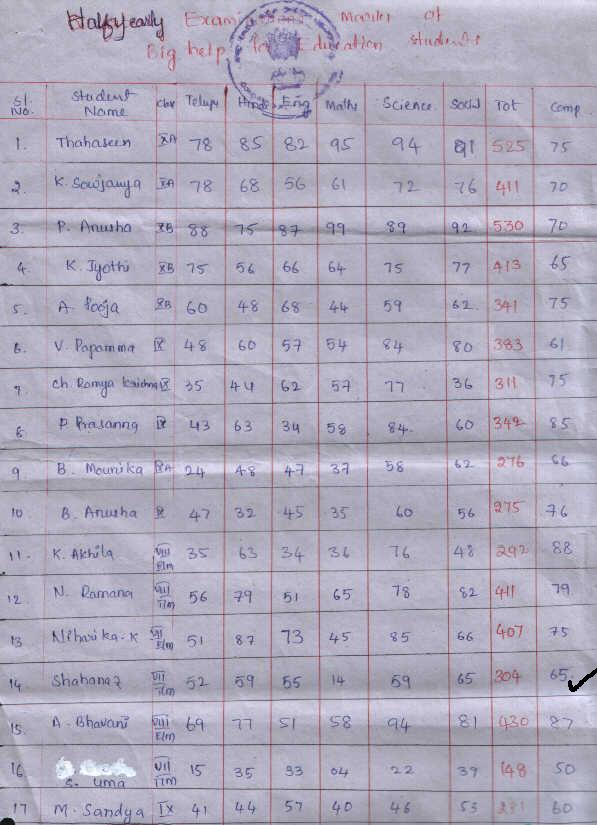 Halfyearly Examinations Marks of
Big help for Education students
Sl. No. Student Name Class Telugu Hindi Eng Maths Science Social Tot Comp
1. Thahaseen XA 78 85 82 95 94 91 525 75
2. K. Sowjanya XA 78 68 56 61 72 76 411 70
3. P. Anusha XB 88 75 87 99 89 92 530 70
4. K. Jyothi XB 75 56 66 64 75 77 413 65
5. A. Pooja XB 60 48 68 44 59 62. 341 75
6. V. Papamma IX 48 60 57 54 84 80 383 61
7. Ch. Ramya Krishna IX 35 44 62 57 77 36 311 75
8 P Prasanna IX 43 63 34 58 84. 60 342 85
9 B. Mounika IXA 24 48 47 37 58 62 276 66
10 B. Anusha IX 47 32 45 35 60 56 275 76
11. K. Akhila VIII E/m 35 63 34 36 76 48 292 88
12. N. Ramana VIII T/m 56 79 51 65 78 82 411 79
13 Niharika. K VII E/m 51 87 73 45 85 66 407 75
14 Shahanaz VII T/m 52 59 55 14 59 65 304 65.
15. A. Bhavani VIII E/m 69 77 51 58 94 81 430 87
16 S. Uma VII T/m 15 35 33 04 22 39 148 50
17 M. Sandya IX 41 44 57 40 46 53 281 60